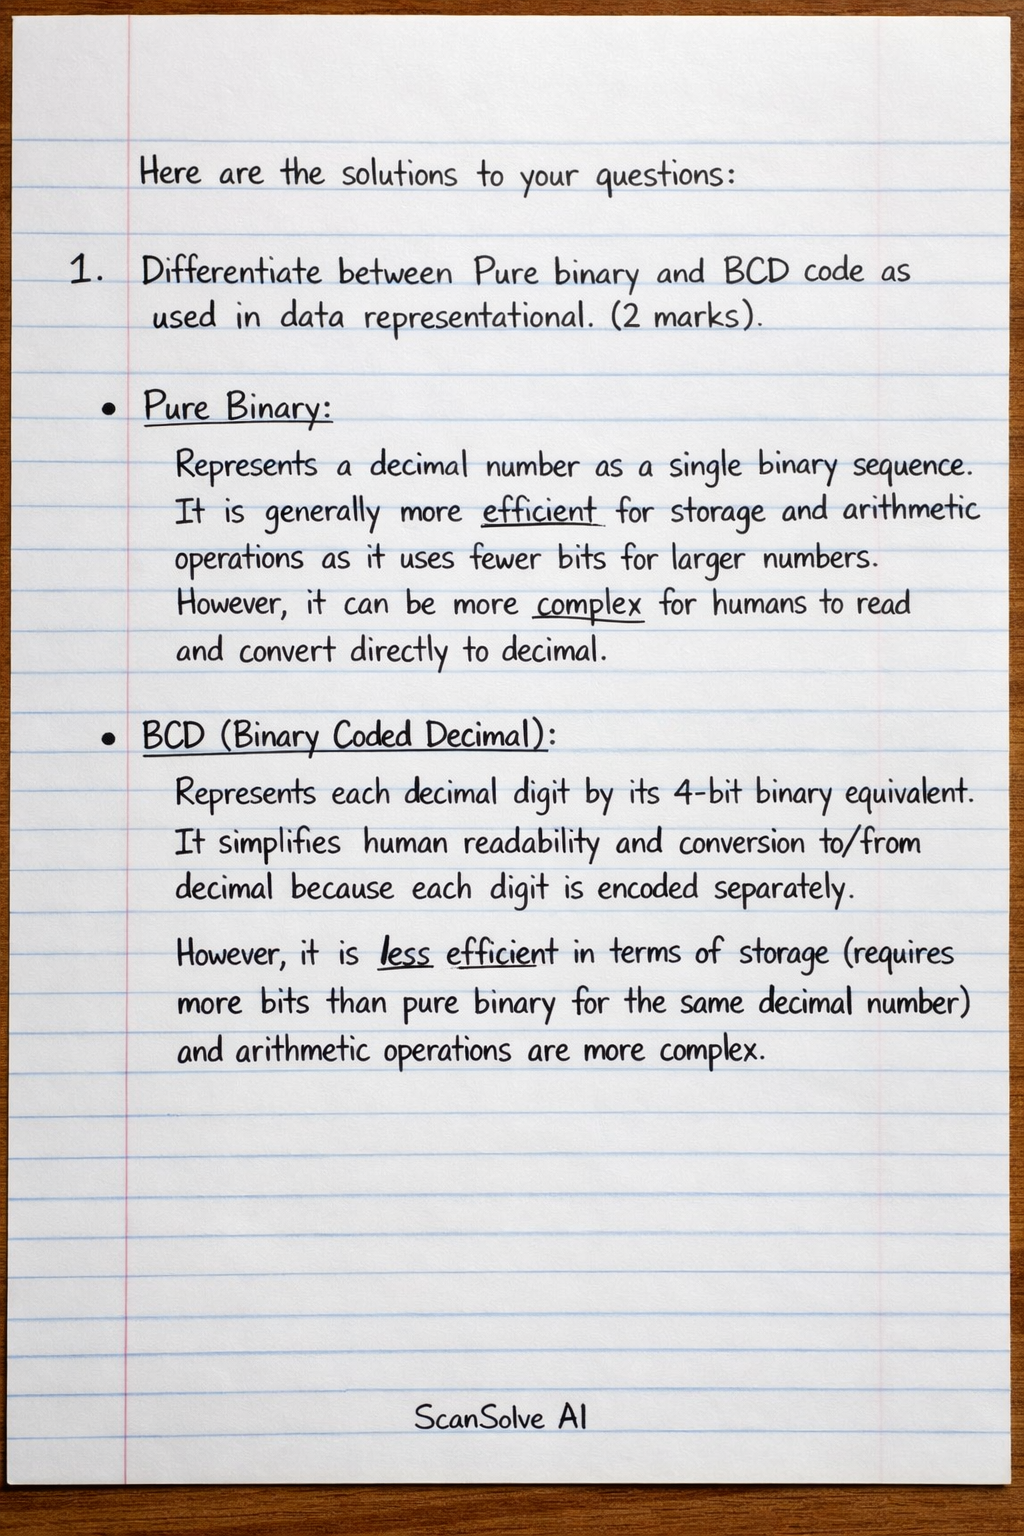 Here are the solutions to your questions:
1. Differentiate between Pure binary and BCD code as
used in data representational. (2 marks).
• Pure Binary:
Represents a decimal number as a single binary sequence.
It is generally more efficient for storage and arithmetic
operations as it uses fewer bits for larger numbers.
However, it can be more complex for humans to read
and convert directly to decimal.
• BCD (Binary Coded Decimal):
Represents each decimal digit by its 4-bit binary equivalent.
It simplifies human readability and conversion to/from
decimal because each digit is encoded separately.
However, it is less efficient in terms of storage (requires
more bits than pure binary for the same decimal number)
and arithmetic operations are more complex.
ScanSolve AI